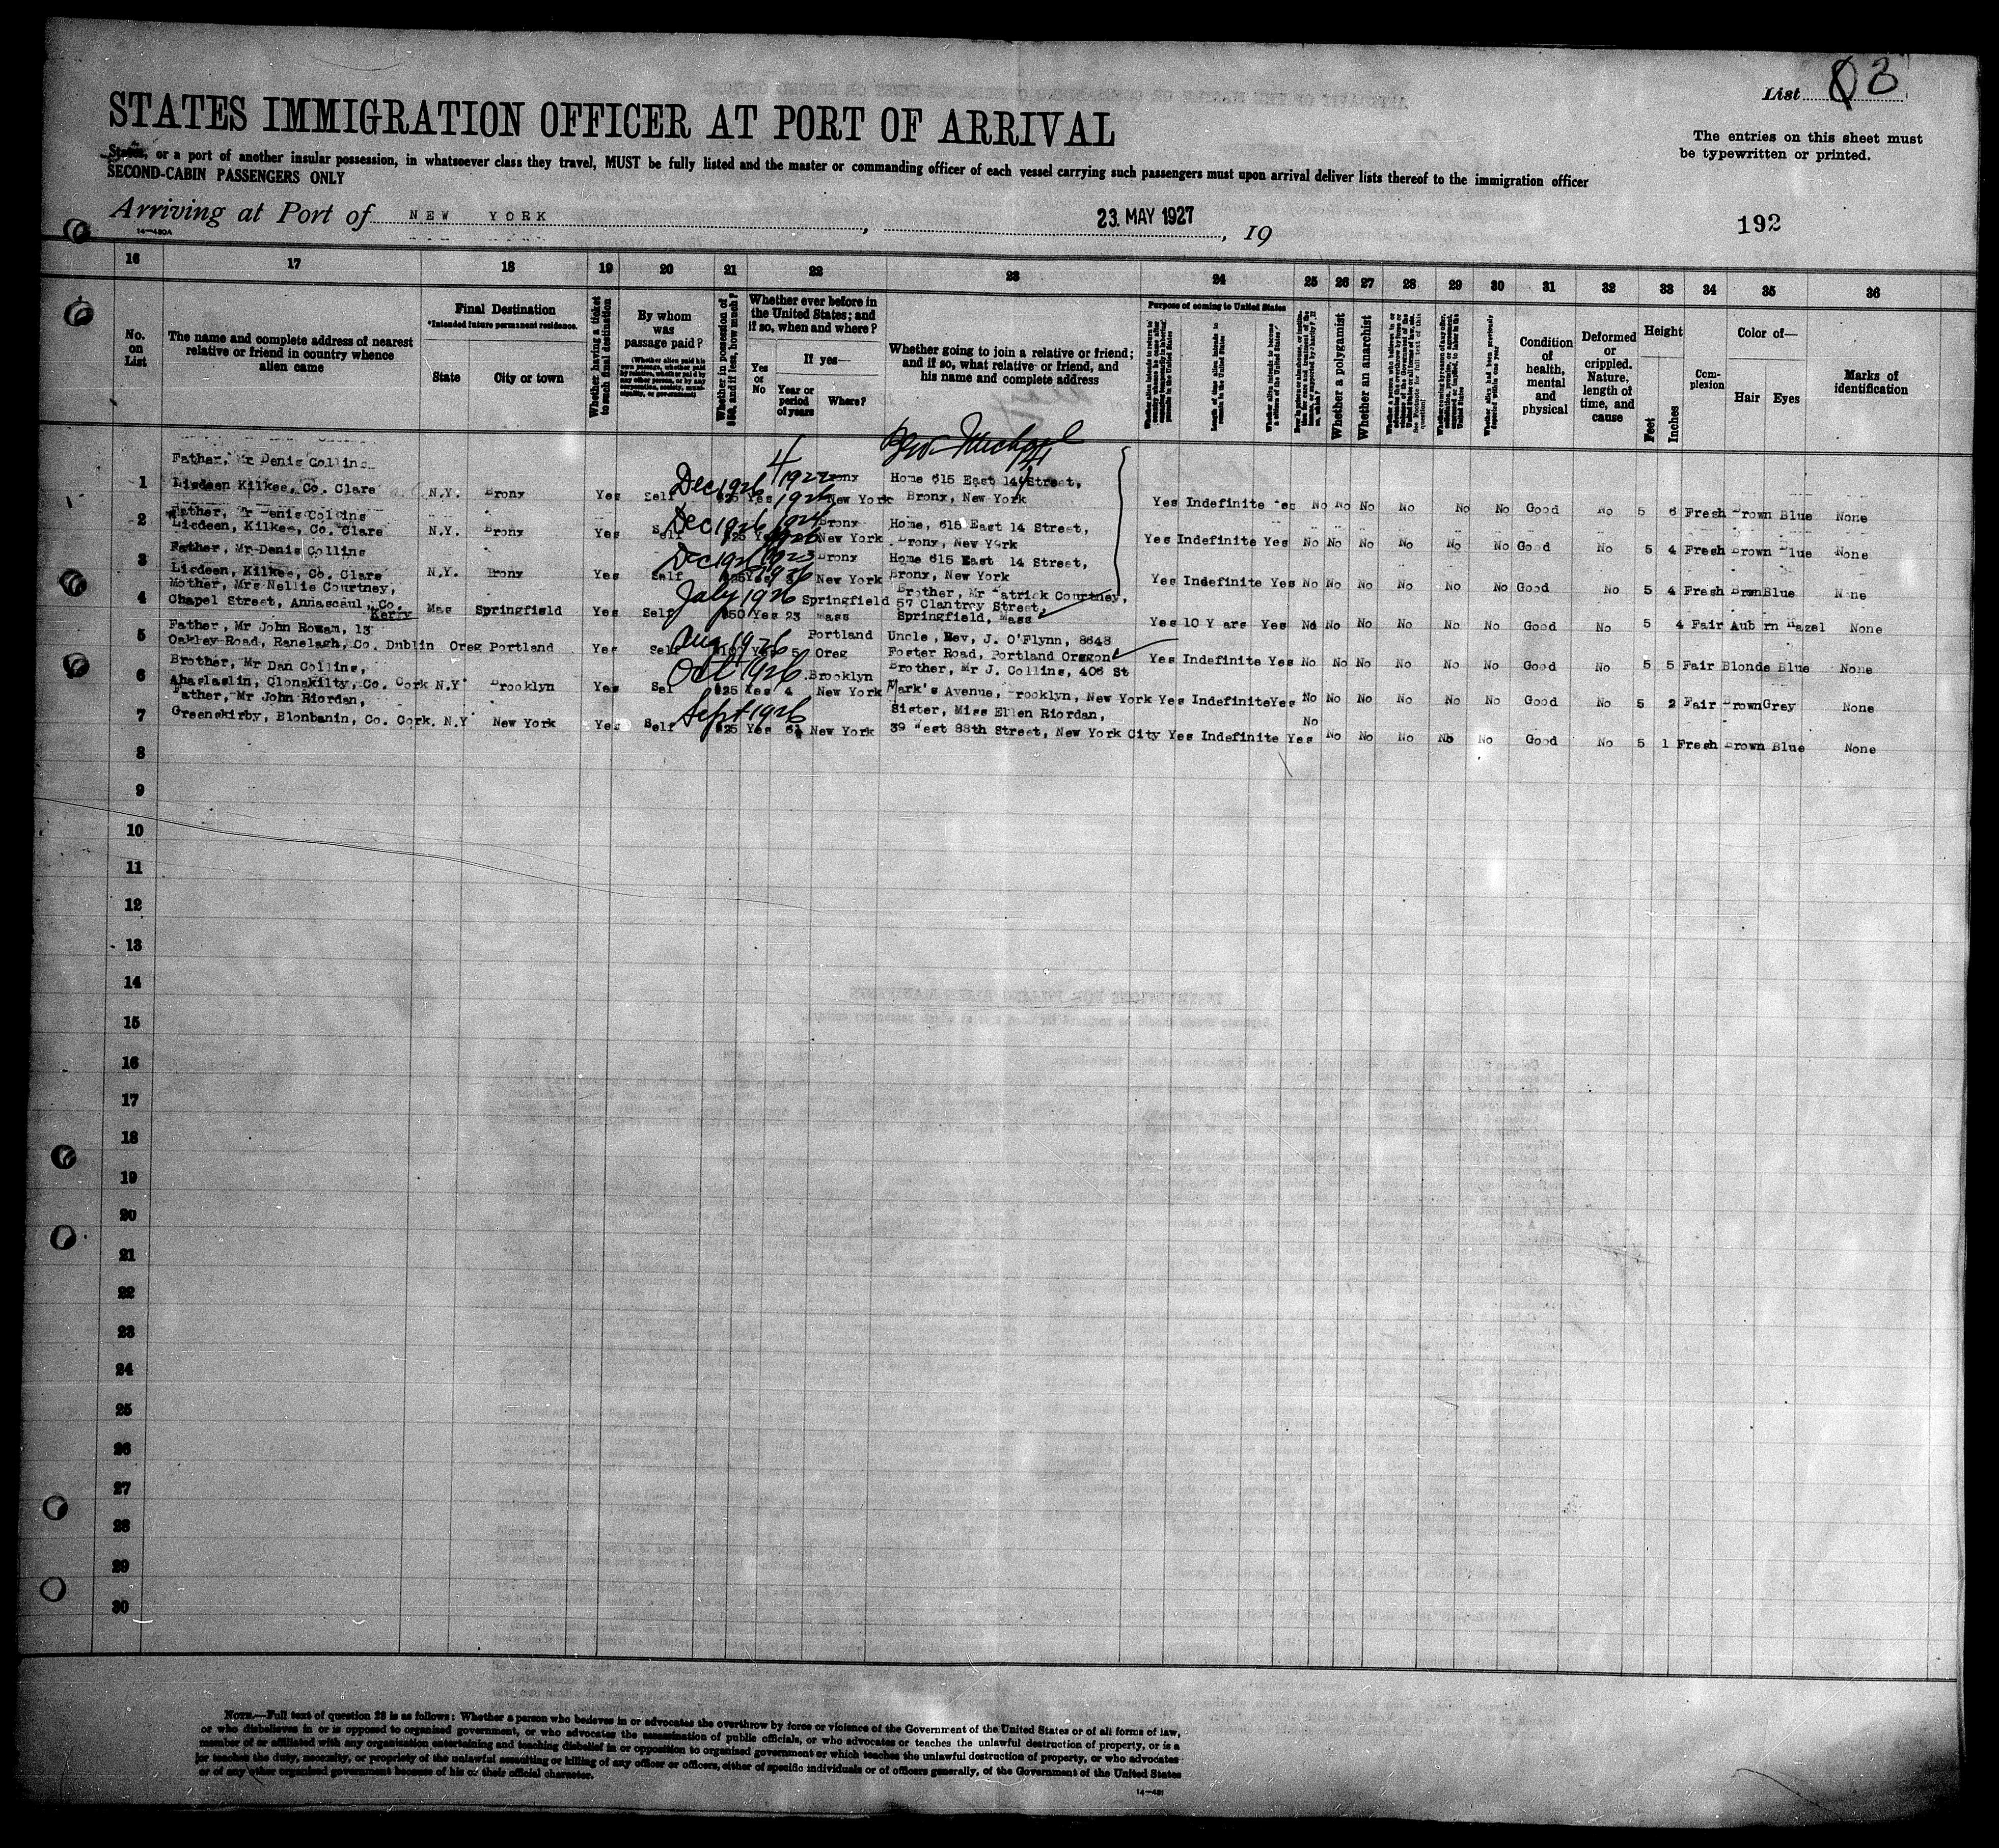 List 3
STATES IMMIGRATION OFFICER AT PORT OF ARRIVAL
The entries on this sheet must
be typewritten or printed.
States, or a port of another insular possession, in whatsoever class they travel, MUST be fully listed and the master or commanding officer of each vessel carrying such passengers must upon arrival deliver lists thereof to the immigration officer
SECOND-CABIN PASSENGERS ONLY
Arriving at Port of NEW YORK, 23. MAY 1927, 19
192
14—480A
16 17 18 19 20 21 22 23 24 25 26 27 28 29 30 31 32 33 34 35 36
No. on List
The name and complete address of nearest relative or friend in country whence alien came
Final Destination
*Intended future permanent residence.
State
City or town
Whether having a ticket to such final destination
By whom was passage paid?
Whether in possession of $50, and if less, how much?
Whether ever before in the United States; and if so, when and where?
Yes or No
If yes—
Year or period of years
Where?
Whether going to join a relative or friend; and if so, what relative or friend, and his name and complete address
Purpose of coming to United States
Length of time alien intends to remain in the United States
Whether a polygamist
Whether an anarchist
Condition of health, mental and physical
Deformed or crippled. Nature, length of time, and cause
Height
Feet
Inches
Complexion
Color of—
Hair
Eyes
Marks of identification
Bro Michael
Father, Mr Denis Collins
1 Lisdeen Kilkee, Co. Clare N.Y. Bronx Yes Self Dec 1926 $25 Yes 4 1922 1926 Bronx New York Home 615 East 14 Street, Bronx, New York Yes Indefinite Yes No No No No No No Good No 5 6 Fresh Brown Blue None
Father, Mr Denis Collins
2 Lisdeen, Kilkee, Co. Clare N.Y. Bronx Yes Self Dec 1926 $25 1926 Bronx New York Home, 615 East 14 Street, Bronx, New York Yes Indefinite Yes No No No No No No Good No 5 4 Fresh Brown Blue None
Father, Mr Denis Collins
3 Lisdeen, Kilkee, Co. Clare N.Y. Bronx Yes Self Dec 1926 $25 Yes 1923 1926 Bronx New York Home 615 East 14 Street, Bronx, New York Yes Indefinite Yes No No No No No No Good No 5 4 Fresh Brown Blue None
Mother, Mrs Nellie Courtney,
4 Chapel Street, Annascaul, Co. Kerry Mas Springfield Yes Self July 1926 $50 Yes 23 Springfield Mass Brother, Mr Patrick Courtney, 57 Clantrey Street, Springfield, Mass Yes 10 Years Yes No No No No No No Good No 5 4 Fair Auburn Hazel None
Father, Mr John Rowan, 13
5 Oakley Road, Ranelagh, Co. Dublin Oreg Portland Yes Self Aug 1926 Yes 5 Portland Oreg Uncle, Rev, J. O'Flynn, 8648 Foster Road, Portland Oregon Yes Indefinite Yes No No No No No No Good No 5 5 Fair Blonde Blue None
Brother, Mr Dan Collins,
6 Ahaglaslin, Clonakilty, Co. Cork N.Y. Brooklyn Yes Self Oct 1926 $25 Yes 4 Brooklyn New York Brother, Mr J. Collins, 406 St Mark's Avenue, Brooklyn, New York Yes Indefinite Yes No No No No No No Good No 5 2 Fair Brown Grey None
Father, Mr John Riordan,
7 Greenskirby, Blonbanin, Co. Cork. N.Y New York Yes Self Sept 1926 $25 Yes 6½ New York Sister, Miss Ellen Riordan, 39 West 88th Street, New York City Yes Indefinite Yes No No No No No No Good No 5 1 Fresh Brown Blue None
8
9
10
11
12
13
14
15
16
17
18
19
20
21
22
23
24
25
26
27
28
29
30
NOTE.—Full text of question 28 is as follows: Whether a person who believes in or advocates the overthrow by force or violence of the Government of the United States or of all forms of law,
or who disbelieves in or is opposed to organized government, or who advocates the assassination of public officials, or who advocates or teaches the unlawful destruction of property, or is a
member of or affiliated with any organization entertaining and teaching disbelief in or opposition to organized government or which teaches the unlawful destruction of property, or who advocates
or teaches the duty, necessity, or propriety of the unlawful assaulting or killing of any officer or officers, either of specific individuals or of officers generally, of the Government of the United States
or of any other organized government because of his or their official character.
14—481